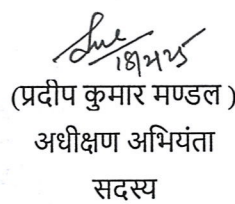 18/2/25
(प्रदीप कुमार मण्डल )
अधीक्षण अभियंता
सदस्य